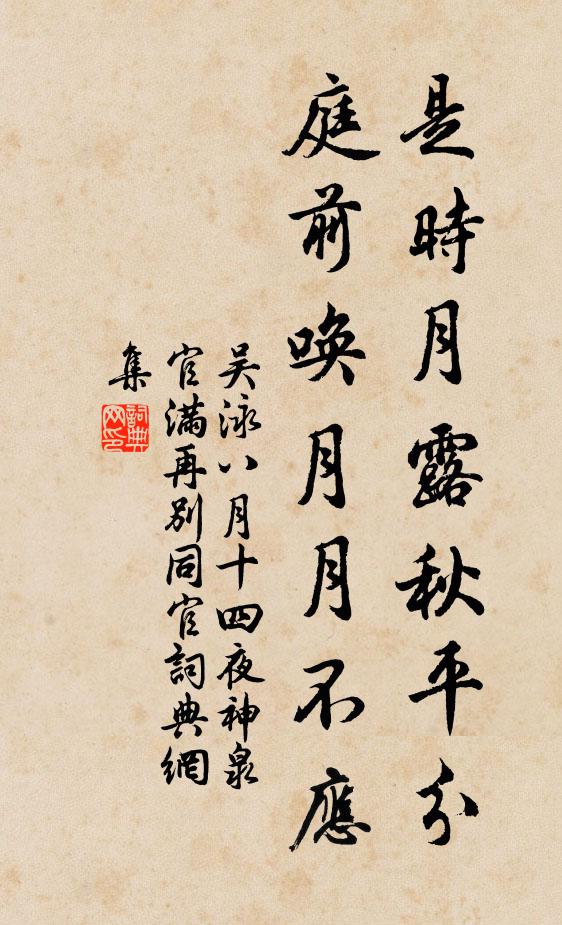 是時月露秋平分
庭前喚月月不應
吴泳八月十四夜神泉
官滿再別同官詞典網
集
詞典
网印